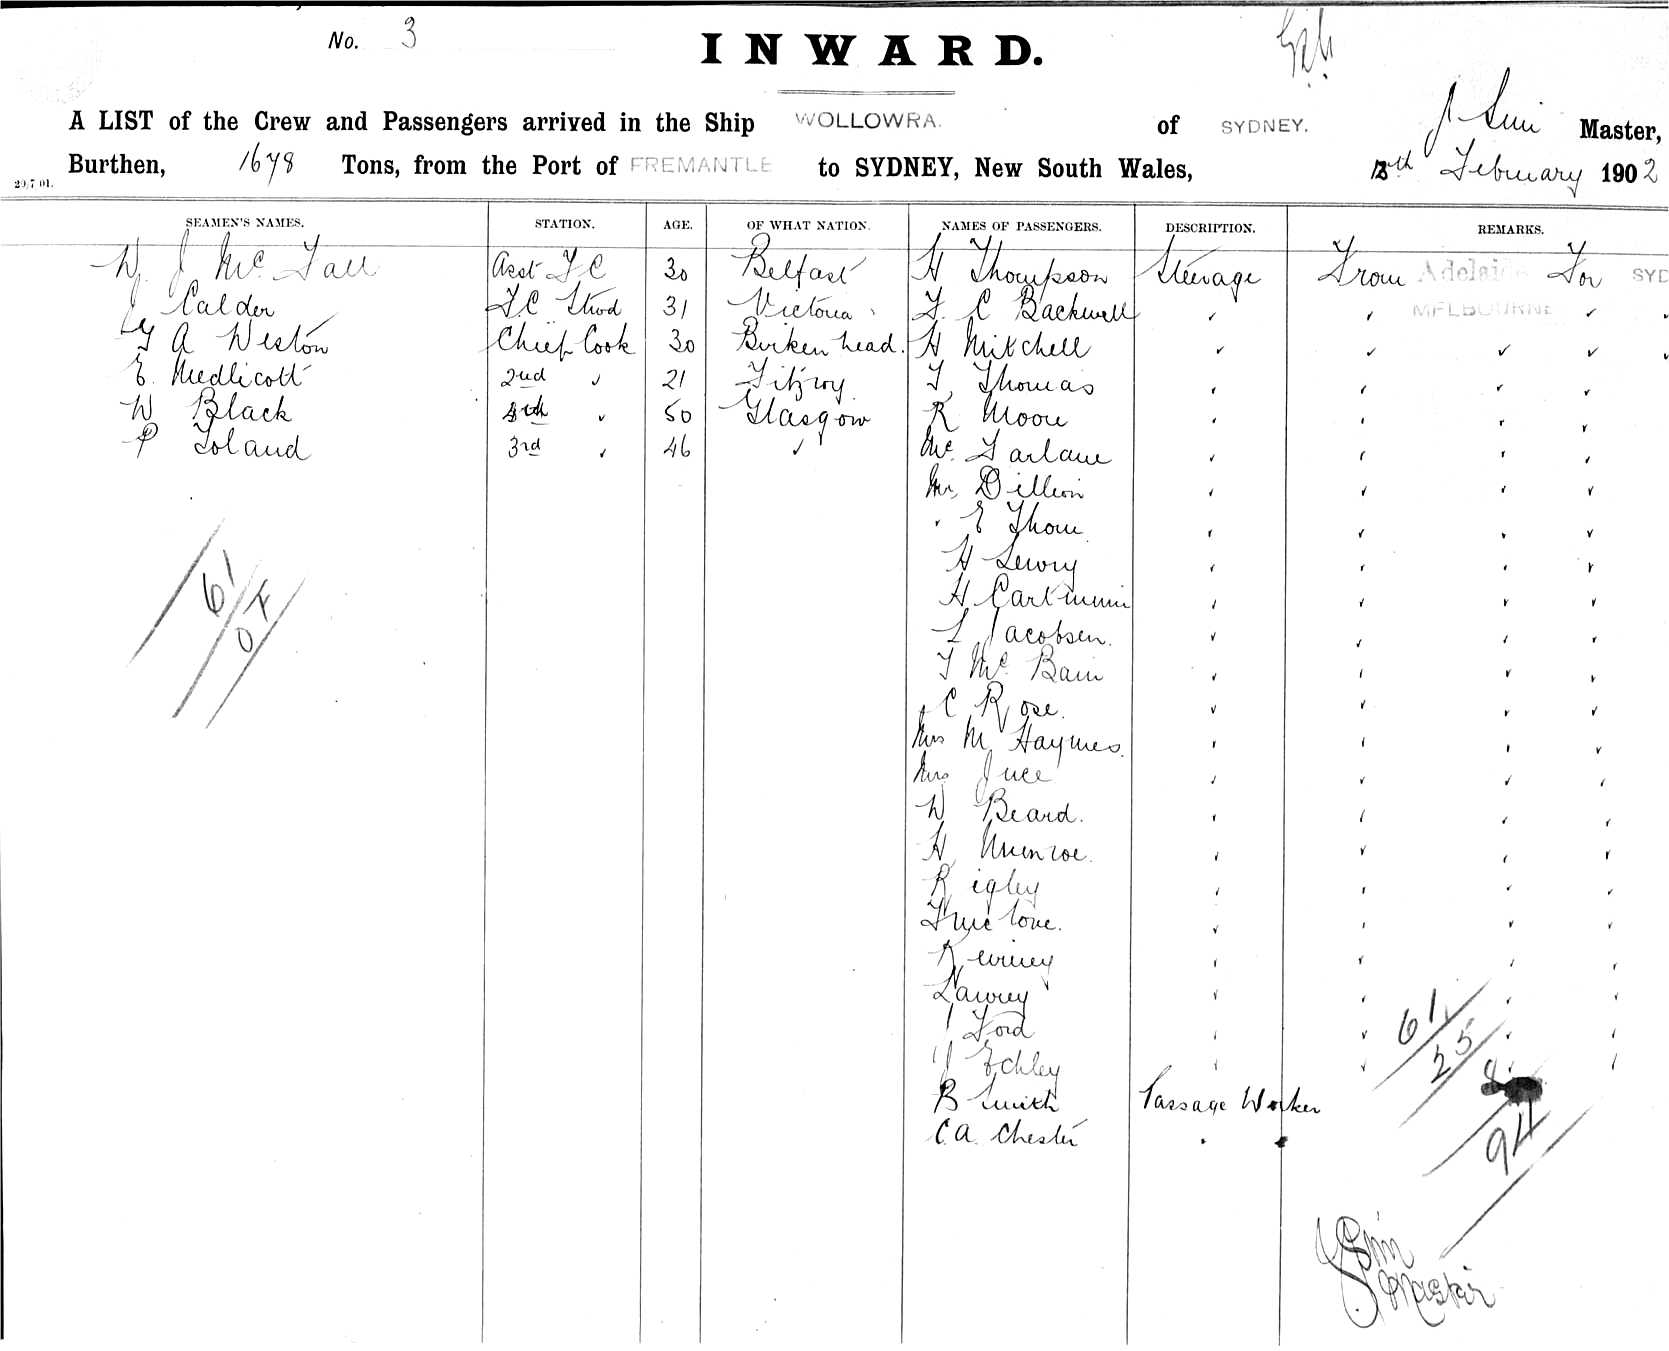 No. 3
INWARD.
A LIST of the Crew and Passengers arrived in the Ship WOLLOWRA. of SYDNEY. J Sim Master,
Burthen, 1678 Tons, from the Port of FREMANTLE to SYDNEY, New South Wales, 13th February 1902
29.7.01.
SEAMEN'S NAMES. STATION. AGE. OF WHAT NATION. NAMES OF PASSENGERS. DESCRIPTION. REMARKS.
W. J McFall Asst F C 30 Belfast H Thompson Steerage From Adelaide For SYD
J Calder F.C. Stwd 31 Victoria F. C Backwell " " MELBOURNE " "
A Weston Chief Cook 30 Birkenhead. H Mitchell " " " " "
E. Medlicott 2nd " 21 Fitzroy T. Thomas " " " "
W Black 4th " 50 Glasgow R Moore " " " "
P Toland 3rd " 46 " McFarlane " " " "
Mr Dillion " " " "
" E Thom " " " "
H Lewry " " " "
H " " " "
L Jacobsen. " " " "
T McBain " " " "
C Rose. " " " "
Mrs M Haymes. " " " "
Mrs Juce " " " "
W Beard. " " " "
H Munroe. " " " "
Rigley " " " "
Truelove. " " " "
" " " "
Lawrey " " " "
Ford " " " "
J Echley " " "
B Smith Passage Worker
C.A. Chester " "
61
0 F
61
25
8
94
J Sim
Master